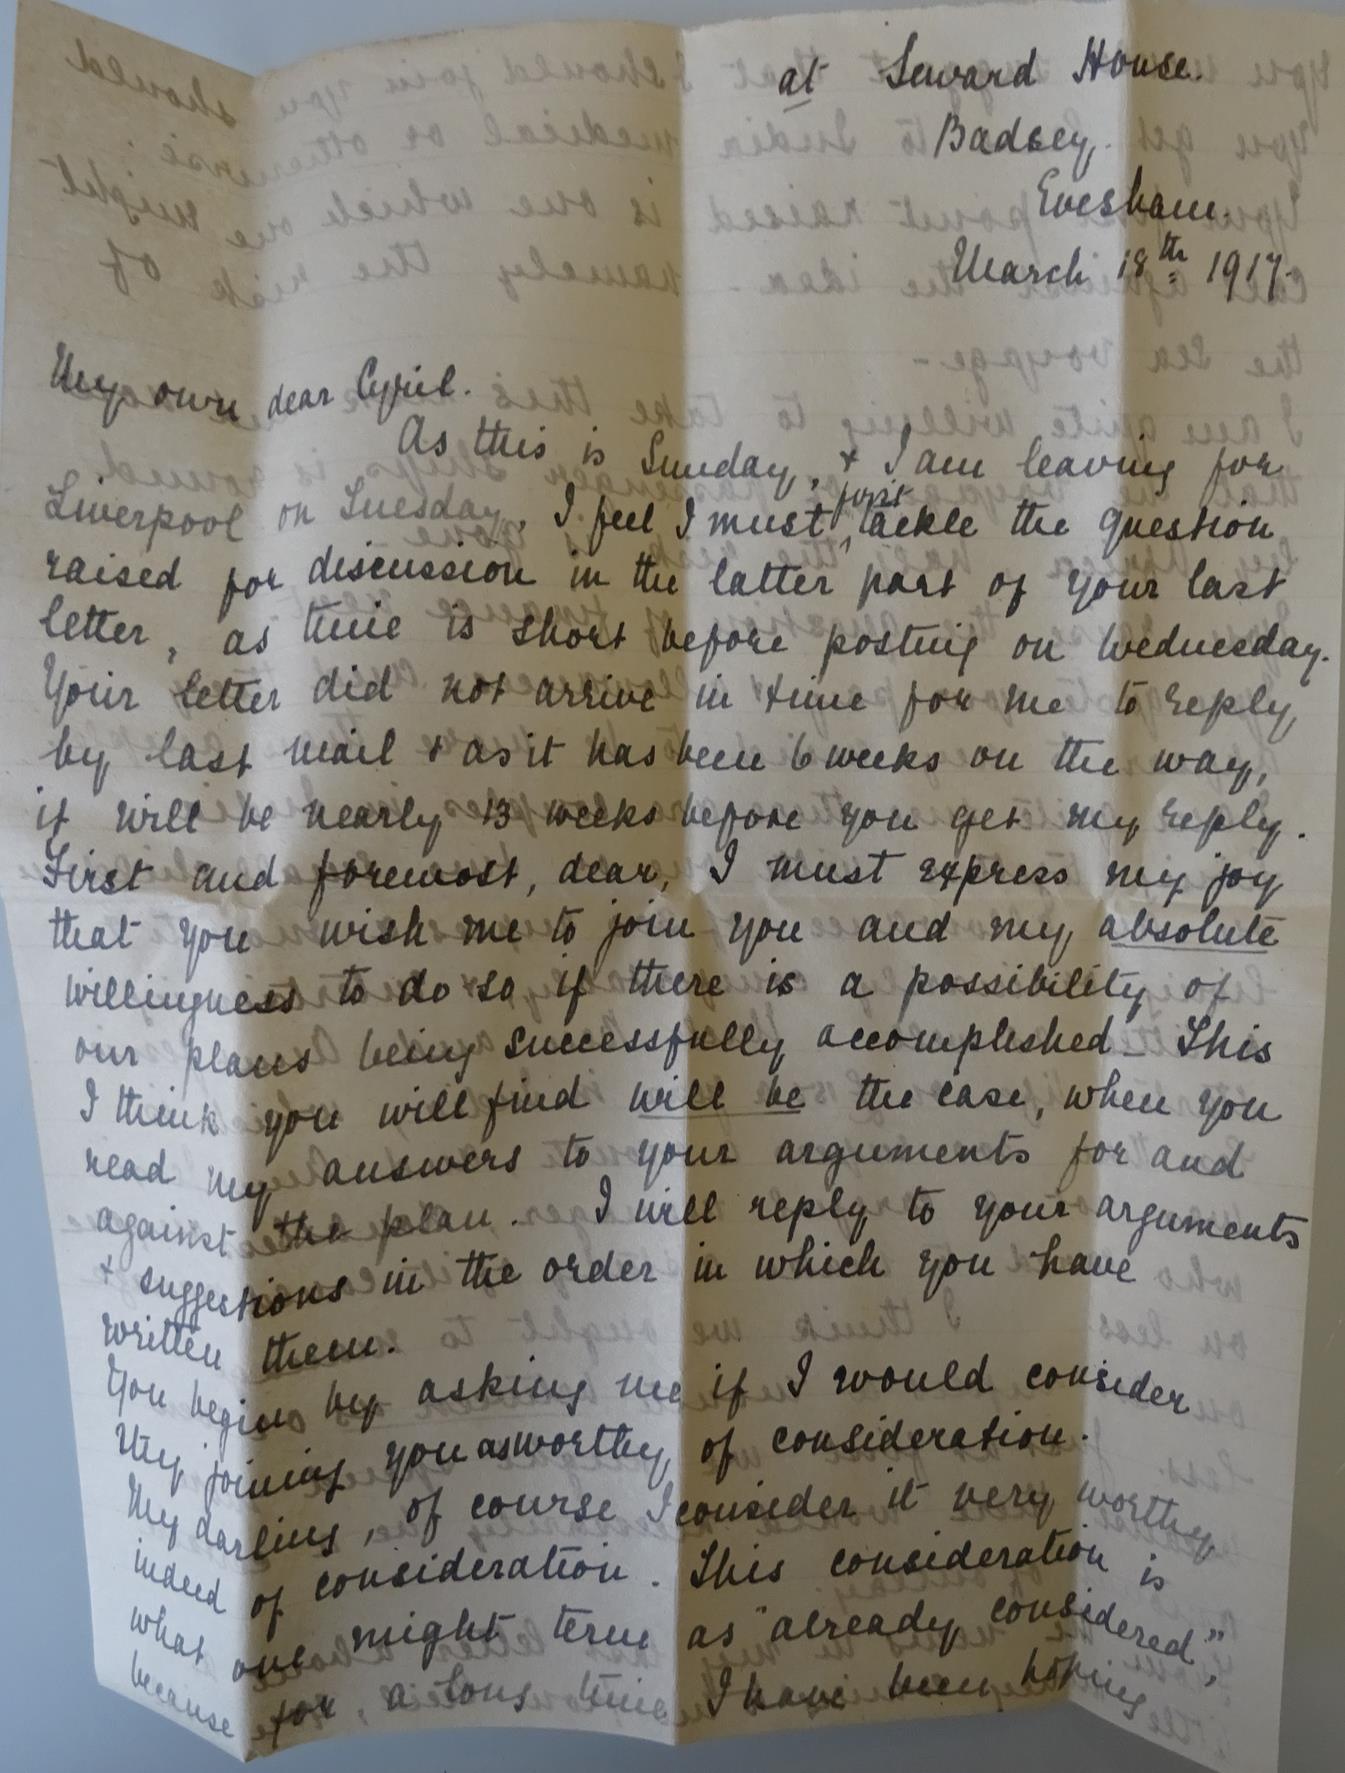 at Seward House.
Badsey.
Evesham.
March 18th 1917.
My own dear Cyril.
As this is Sunday, & I am leaving for
Liverpool on Tuesday, I feel I must first tackle the question
raised for discussion in the latter part of your last
letter, as time is short before posting on Wednesday.
Your letter did not arrive in time for me to reply
by last mail & as it has been 6 weeks on the way,
it will be nearly 13 weeks before you get my reply.
First and foremost, dear, I must express my joy
that you wish me to join you and my absolute
willingness to do so if there is a possibility of
our plans being successfully accomplished - This
I think you will find will be the case, when you
read my answers to your arguments for and
against the plan. I will reply to your arguments
& suggestions in the order in which you have
written them.
You begin by asking me if I would consider
my joining you as worthy of consideration.
My darling, of course I consider it very worthy
indeed of consideration. This consideration is
what one might term as "already considered",
because for a long time I have been hoping